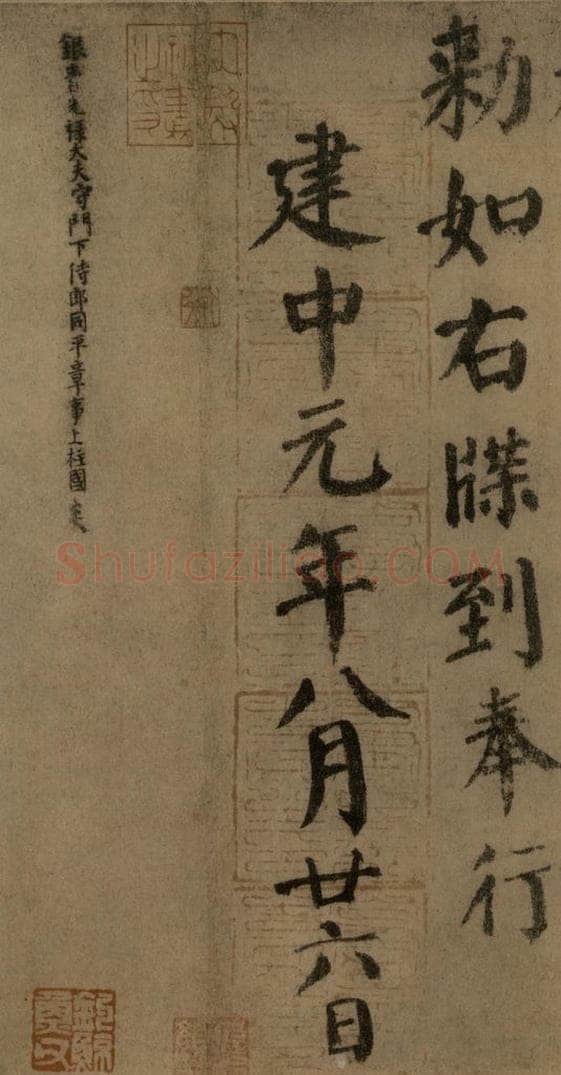 勅如右牒到奉行
建中元年八月廿六日
銀青光祿大夫守門下侍郎同平章事上柱國炎
Shufaziliao.COM